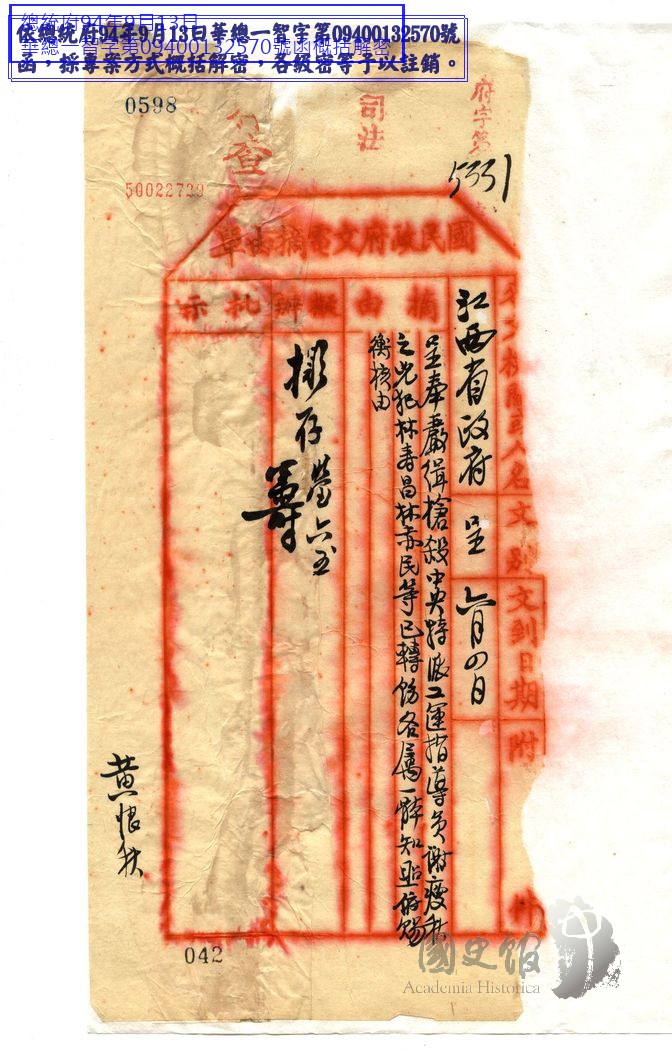 總統府94年9月13日
華總一智字第09400132570號函概括解密
依總統府94年9月13日華總一智字第09400132570號
函，採專案方式概括解密，各級密等予以註銷。
0598
50022729
查
司法
府字第
5331
國民政府文電摘由單
來文機關或人名
文別
文到日期
附件
摘由
擬辦
批示
江西省政府
呈
六月四日
呈奉嚴緝槍殺中央特派工運指導員謝瘦秋
之兇犯林壽昌林赤民等已轉飭各屬一體知照俯賜
衡核由
擬存
黃恨秋
042
國史館
Academia Historica